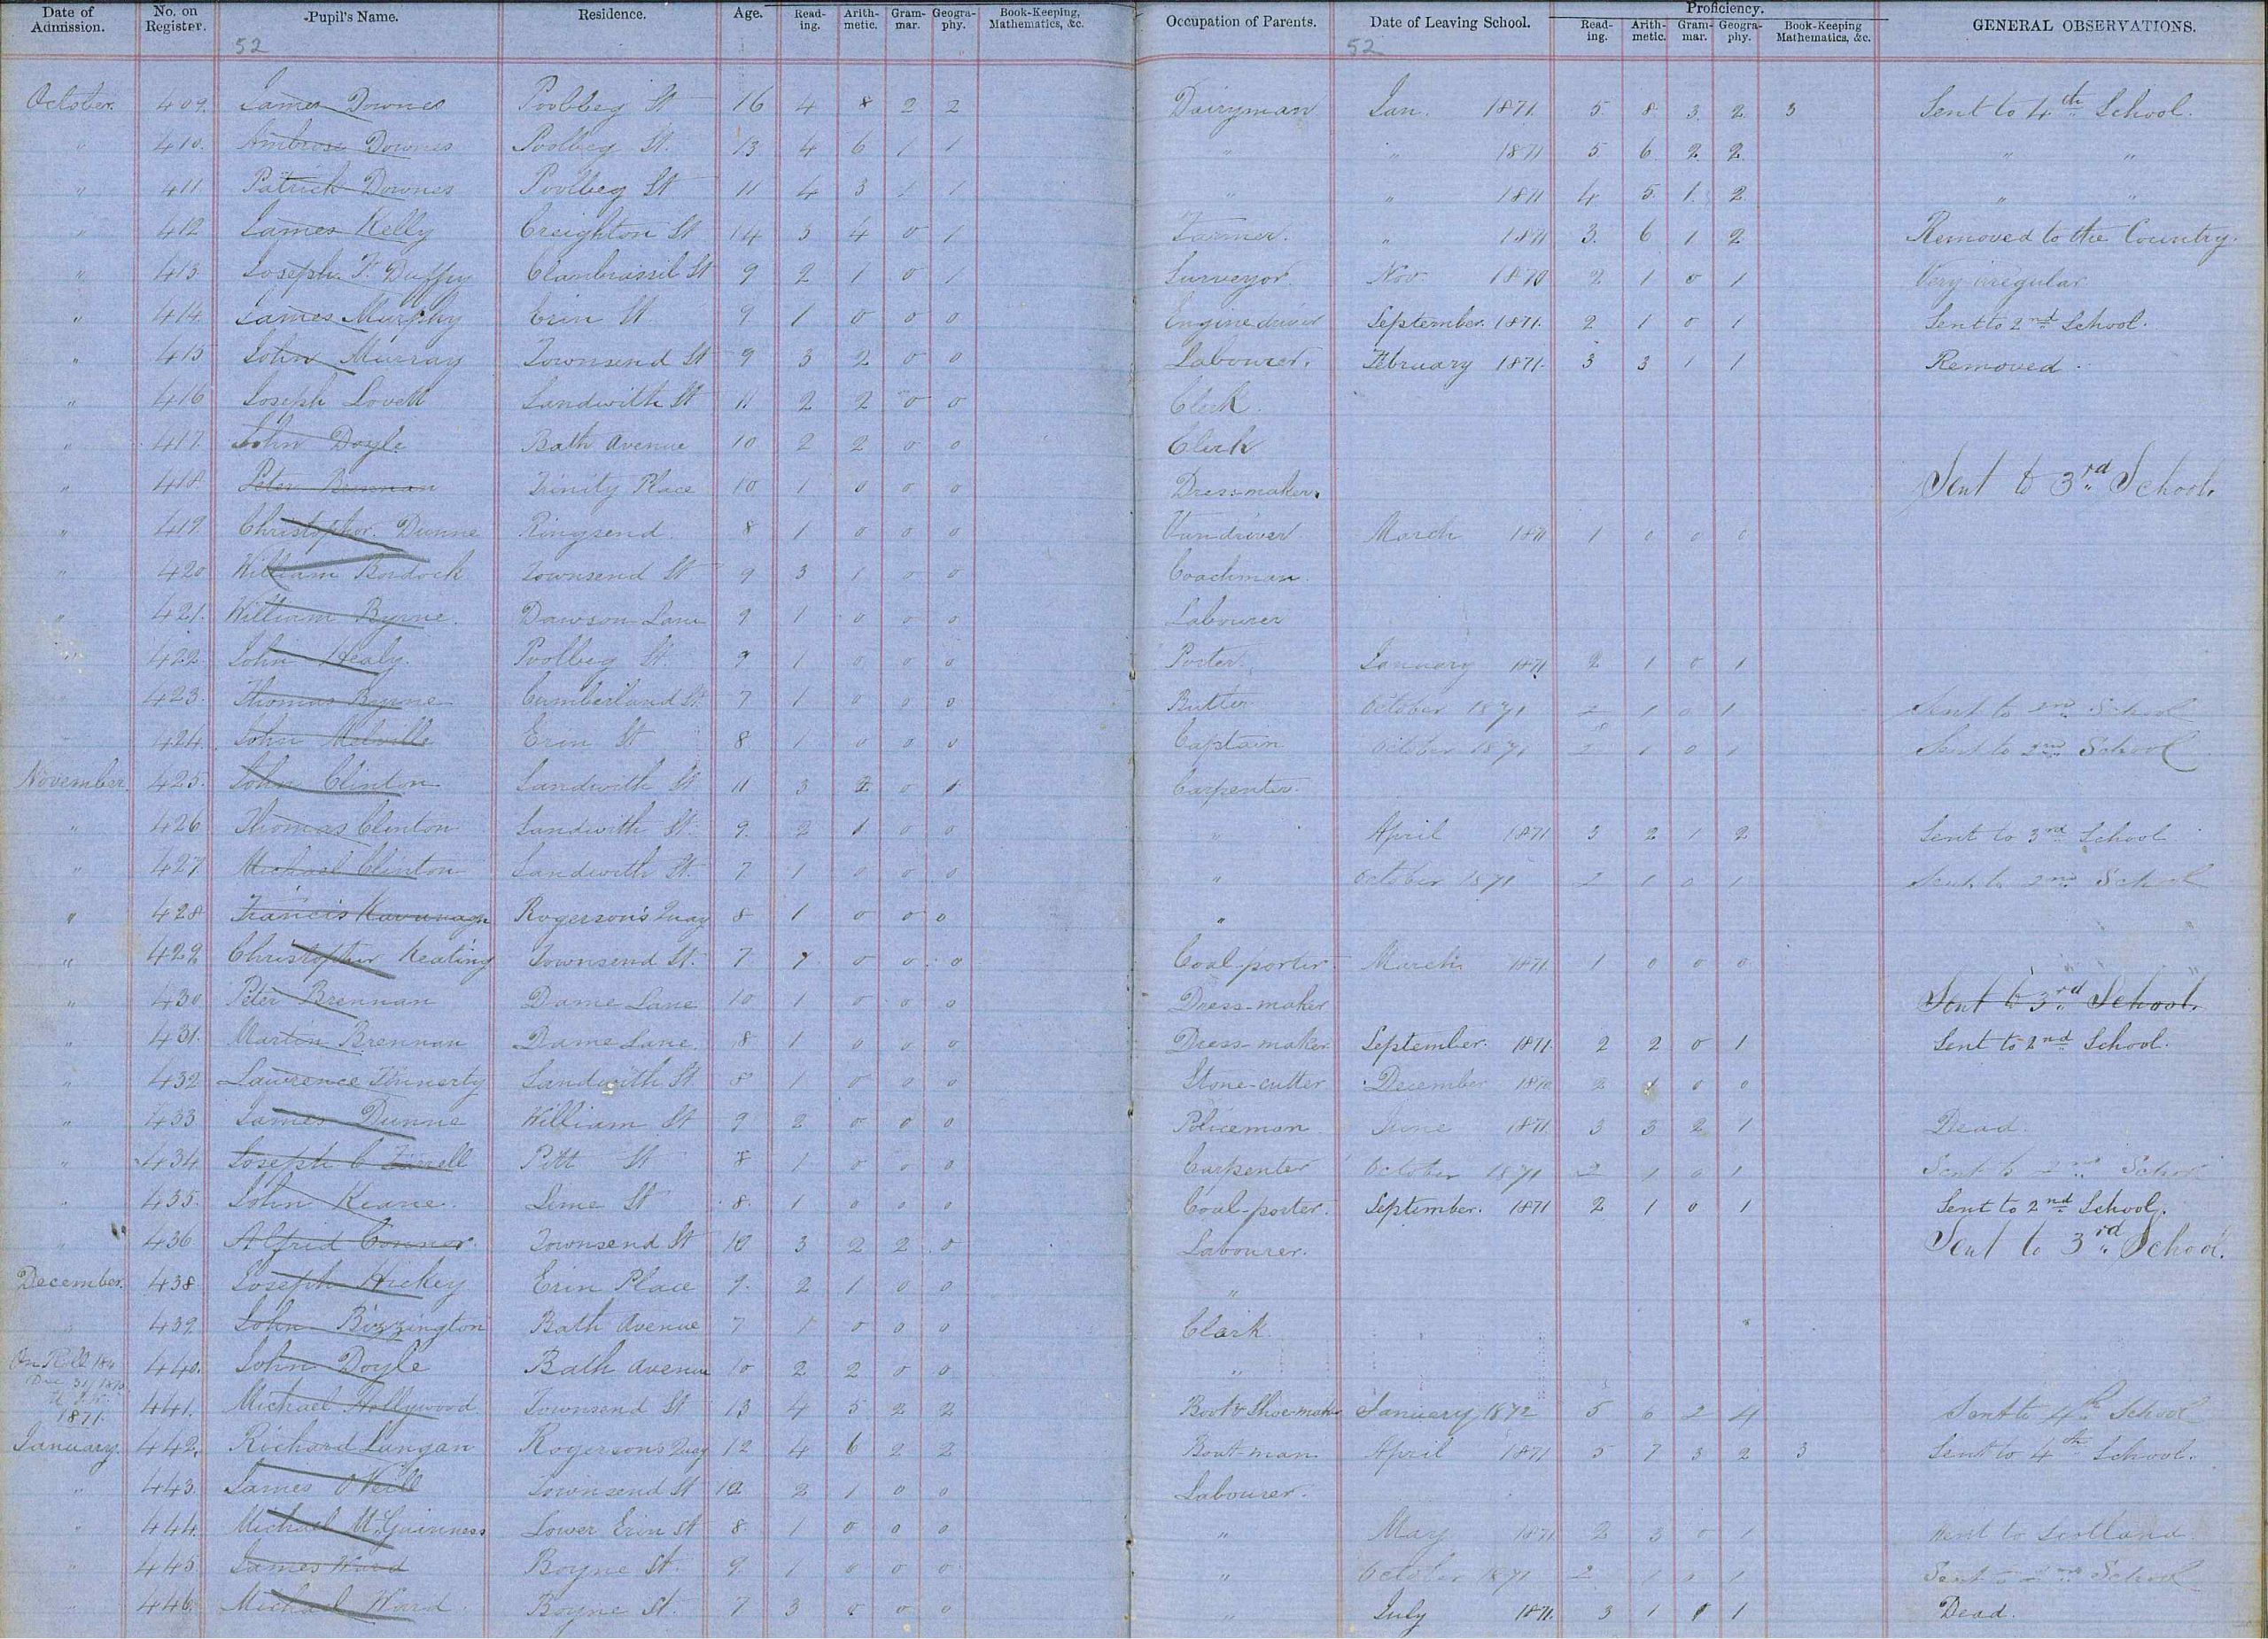 Date of Admission. No. on Register. Pupil's Name. Residence. Age. Reading. Arithmetic. Grammar. Geography. Book-Keeping, Mathematics, &c. Occupation of Parents. Date of Leaving School. Proficiency. Reading. Arithmetic. Grammar. Geography. Book-Keeping Mathematics, &c. GENERAL OBSERVATIONS.
52 52
October. 409. James Downes Poolbeg St 16 4 8 2 2 Dairyman Jan. 1871. 5 8 3 2 3 Sent to 4th School.
" 410. Ambrose Downes Poolbeg St. 13 4 6 1 1 " " 1871 5 6 2 2 " "
" 411 Patrick Downes Poolbeg St 11 4 3 1 1 " " 1871 4 5 1 2 " "
" 412 James Kelly Creighton St 14 3 4 0 1 Farmer. " 1871 3 6 1 2 Removed to the Country.
" 413 Joseph F. Duffy Clanbrassil St 9 2 1 0 1 Surveyor Nov. 1870 2 1 0 1 Very irregular
" 414 James Murphy Erin St 9 1 0 0 0 Engine driver September. 1871. 2 1 0 1 Sent to 2nd School.
" 415 John Murray Townsend St 9 3 2 0 0 Labourer. February 1871. 3 3 1 1 Removed.
" 416 Joseph Lovett Sandwith St 11 2 2 0 0 Clerk.
" 417. John Doyle Bath Avenue 10 2 2 0 0 Clerk
" 418. Peter Brennan Trinity Place 10 1 0 0 0 Dressmaker. Sent to 3rd School.
" 419. Christopher Dunne Ringsend. 8 1 0 0 0 Vandriver. March 1871 1 0 0 0
" 420 William Bordock Townsend St 9 3 1 0 0 Coachman.
" 421. William Byrne. Dawson Lane 9 1 0 0 0 Labourer
" 422 John Healy. Poolbeg St. 9 1 0 0 0 Porter. January 1871 2 1 0 1
423. Thomas Byrne Cumberland St. 7 1 0 0 0 Butter October 1871 2 1 0 1 Sent to 2nd School
424. John Melville Erin St 8 1 0 0 0 Captain October 1871 2 1 0 1 Sent to 2nd School
November. 425. John Clinton Sandwith St 11 3 2 0 1 Carpenter.
" 426 Thomas Clinton Sandwith St. 9. 2 1 0 0 " April 1871 3 2 1 2 Sent to 3rd School
" 427 Michael Clinton Sandwith St. 7. 1 0 0 0 " October 1871 2 1 0 1 Sent to 2nd School
" 428 Francis Kavanagh Rogerson's Quay 8 1 0 0 0 "
" 429 Christopher Keating Townsend St. 7 1 0 0 0 Coal-porter. March 1871 1 0 0 0
" 430 Peter Brennan Dame Lane 10 1 0 0 0 Dress-maker Sent to 3rd School.
" 431. Martin Brennan Dame Lane. 8 1 0 0 0 Dress-maker. September. 1871. 2 2 0 1 Sent to 2nd School.
" 432 Lawrence Finnerty Sandwith St. 8 1 0 0 0 Stone-cutter December 1870 2 1 0 0
" 433 James Dunne William St 9 2 0 0 0 Policeman June 1871. 3 3 2 1 Dead.
" 434. Joseph C Farrell Pitt St 8 1 0 0 0 Carpenter October 1871 2 1 0 1 Sent to 2nd School
" 435. John Keane. Lime St 8. 1 0 0 0 Coal-porter. September. 1871 2 1 0 1 Sent to 2nd School.
" 436 Alfrid Connor. Townsend St 10 3 2 2 0 Labourer. Sent to 3rd School.
December. 438. Joseph Hickey Erin Place 9. 2 1 0 0 "
" 439 John Bizzington Bath Avenue 7 1 0 0 0 Clerk
On Roll Dec 31/1870 440. John Doyle Bath Avenue 10 2 2 0 0 "
1871. 441. Michael Hollywood Townsend St 13 4 5 2 2 Boot & Shoe-maker January 1872 5 6 2 4 Sent to 4th School
January 442. Richard Lungan Rogersons Quay 12 4 6 2 2 Boat-man April 1871 5 7 3 2 3 Sent to 4th School.
" 443. James O'Neill Townsend St 10 2 1 0 0 Labourer.
" 444. Michael McGuinness Lower Erin St 8. 1 0 0 0 " May 1871 2 3 0 1 Went to Scotland
" 445. James Ward Boyne St. 9. 1 0 0 0 " October 1871 2 1 1 1 Sent to 2nd School
446. Michael Ward. Boyne St. 7 3 0 0 0 " July 1871. 3 1 1 1 Dead.